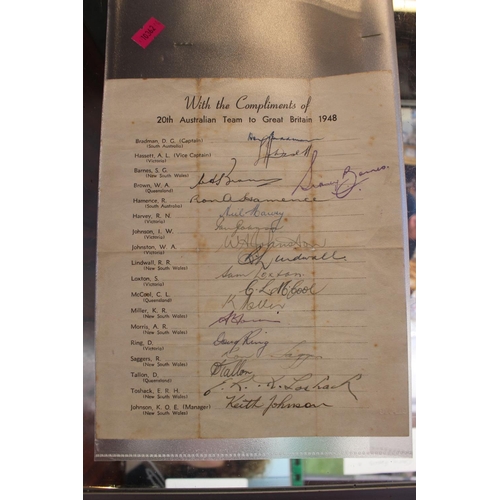 10362
With the Compliments of
20th Australian Team to Great Britain 1948
Bradman, D. G. (Captain)
(South Australia)
Hassett, A. L. (Vice Captain)
(Victoria)
Barnes, S. G.
(New South Wales)
Sidney Barnes.
Brown, W. A.
(Queensland)
W A Brown
Hamence, R.
(South Australia)
Ron A Hamence
Harvey, R. N.
(Victoria)
Neil Harvey
Johnson, I. W.
(Victoria)
Ian Johnson
Johnston, W. A.
(Victoria)
W A Johnston
Lindwall, R. R.
(New South Wales)
R R Lindwall
Loxton, S.
(Victoria)
Sam Loxton
McCool, C. L.
(Queensland)
C. L. McCool
Miller, K. R.
(New South Wales)
K Miller
Morris, A. R.
(New South Wales)
A Morris
Ring, D.
(Victoria)
Doug Ring
Saggers, R.
(New South Wales)
Saggers
Tallon, D.
(Queensland)
D Tallon
Toshack, E. R. H.
(New South Wales)
Toshack
Johnson, K. O. E. (Manager)
(New South Wales)
Keith Johnson